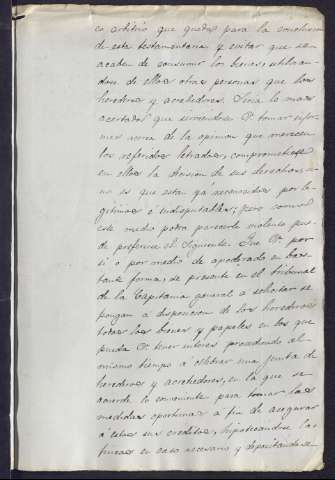 co arbitrio que queda para la conclusion
de esta testamentaria y evitar que se
acaben de consumir los bienes, utilizan-
dose de ellos otras personas que los
herederos y acreedores. Sería lo mas
acertado que sirviendose V. tomar infor-
mes acerca de la opinion que merecen
los referidos letrados, comprometiese
en ellos la decision de sus derechos, si
no es que estan ya reconocidos por le-
gitimos é indisputables; pero como
este medio podra parecerle molesto pue-
de preferirse el siguiente. Que V. por
si o por medio de apoderado en bas-
tante forma, se presente en el tribunal
de la Capitania general a solicitar se
pongan a disposicion de los herederos
todos los bienes y papeles en los que
pueda V. tener interes procediendo al
mismo tiempo á celebrar una junta de
herederos y acreedores, en la que se
acuerde lo conveniente para tomar las
medidas oportunas a fin de asegurar
á estos sus creditos, hipotecandose las
fincas en caso necesario y depositandose